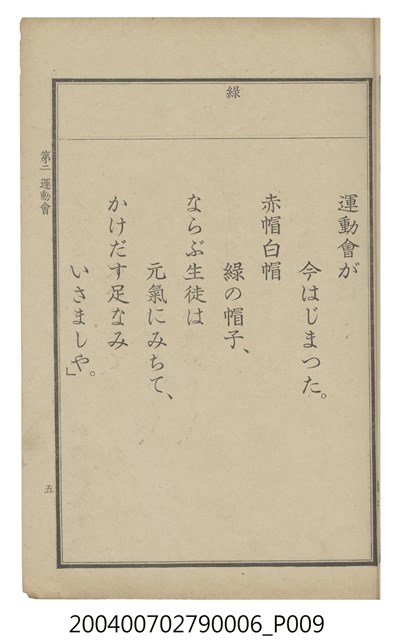 綠
運動會が
今はじまつた。
赤帽白帽
綠の帽子、
ならぶ生徒は
元氣にみちて、
かけだす足なみ
いさましや。」
第二 運動會
五
200400702790006_P009